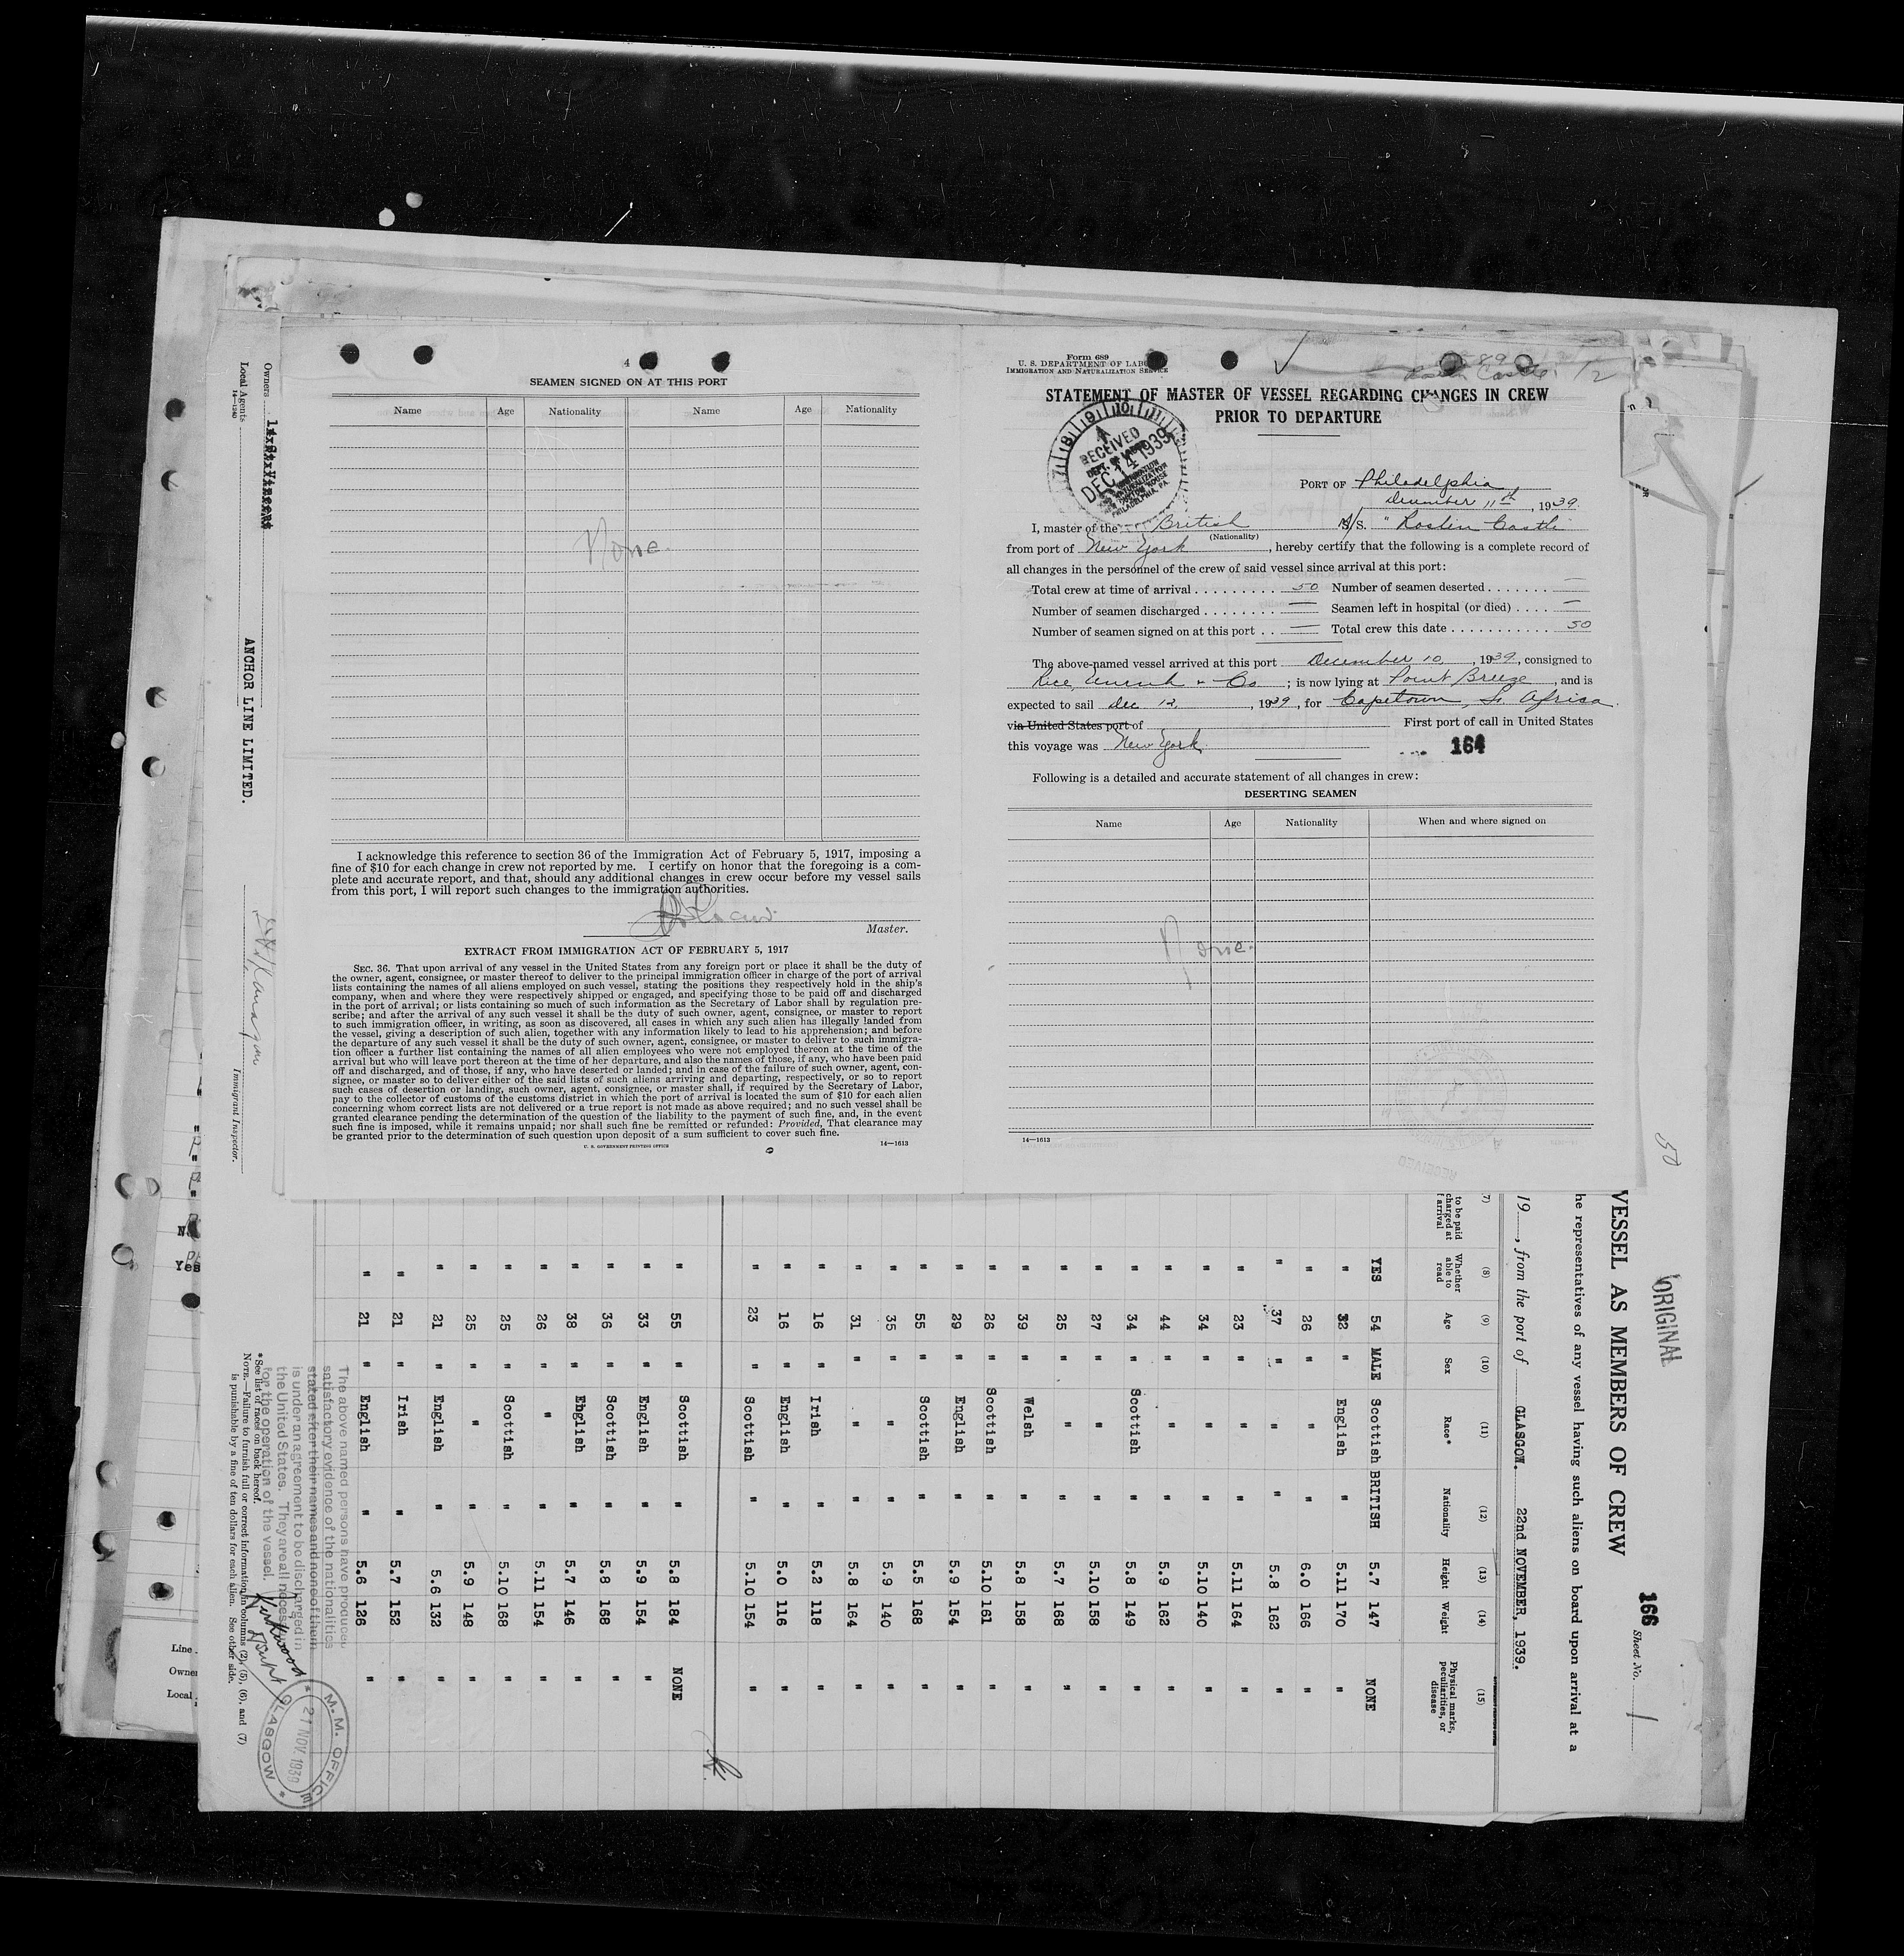 4
SEAMEN SIGNED ON AT THIS PORT
Name Age Nationality Name Age Nationality
None.
I acknowledge this reference to section 36 of the Immigration Act of February 5, 1917, imposing a
fine of $10 for each change in crew not reported by me. I certify on honor that the foregoing is a com-
plete and accurate report, and that, should any additional changes in crew occur before my vessel sails
from this port, I will report such changes to the immigration authorities.
Master.
EXTRACT FROM IMMIGRATION ACT OF FEBRUARY 5, 1917
SEC. 36. That upon arrival of any vessel in the United States from any foreign port or place it shall be the duty of
the owner, agent, consignee, or master thereof to deliver to the principal immigration officer in charge of the port of arrival
lists containing the names of all aliens employed on such vessel, stating the positions they respectively hold in the ship's
company, when and where they were respectively shipped or engaged, and specifying those to be paid off and discharged
in the port of arrival; or lists containing so much of such information as the Secretary of Labor shall by regulation pre-
scribe; and after the arrival of any such vessel it shall be the duty of such owner, agent, consignee, or master to report
to such immigration officer, in writing, as soon as discovered, all cases in which any such alien has illegally landed from
the vessel, giving a description of such alien, together with any information likely to lead to his apprehension; and before
the departure of any such vessel it shall be the duty of such owner, agent, consignee, or master to deliver to such immigra-
tion officer a further list containing the names of all alien employees who were not employed thereon at the time of the
arrival but who will leave port thereon at the time of her departure, and also the names of those, if any, who have been paid
off and discharged, and of those, if any, who have deserted or landed; and in case of the failure of such owner, agent, con-
signee, or master so to deliver either of the said lists of such aliens arriving and departing, respectively, or so to report
such cases of desertion or landing, such owner, agent, consignee, or master shall, if required by the Secretary of Labor,
pay to the collector of customs of the customs district in which the port of arrival is located the sum of $10 for each alien
concerning whom correct lists are not delivered or a true report is not made as above required; and no such vessel shall be
granted clearance pending the determination of the question of the liability to the payment of such fine, and, in the event
such fine is imposed, while it remains unpaid; nor shall such fine be remitted or refunded: Provided, That clearance may
be granted prior to the determination of such question upon deposit of a sum sufficient to cover such fine.
U. S. GOVERNMENT PRINTING OFFICE 14—1613
Form 689
U. S. DEPARTMENT OF LABOR
IMMIGRATION AND NATURALIZATION SERVICE
STATEMENT OF MASTER OF VESSEL REGARDING CHANGES IN CREW
PRIOR TO DEPARTURE
RECEIVED
DEC 14 1939
PHILADELPHIA, PA.
PORT OF Philadelphia
December 11th, 1939.
I, master of the British S/S. "Roslin Castle
(Nationality)
from port of New York, hereby certify that the following is a complete record of
all changes in the personnel of the crew of said vessel since arrival at this port:
Total crew at time of arrival 50 Number of seamen deserted —
Number of seamen discharged — Seamen left in hospital (or died) —
Number of seamen signed on at this port — Total crew this date 50
The above-named vessel arrived at this port December 10, 1939, consigned to
Rice, Unruh & Co; is now lying at Point Breeze, and is
expected to sail Dec 12, 1939, for Capetown, So. Africa.
via United States port of First port of call in United States
this voyage was New York. 164
Following is a detailed and accurate statement of all changes in crew:
DESERTING SEAMEN
Name Age Nationality When and where signed on
None.
14—1613
Owners
Local Agents ANCHOR LINE LIMITED.
14—1240
Immigrant Inspector.
ORIGINAL
50
166 Sheet No. 1
VESSEL AS MEMBERS OF CREW
he representatives of any vessel having such aliens on board upon arrival at a
19, from the port of GLASGOW. 22nd NOVEMBER, 1939.
(7) (8) (9) (10) (11) (12) (13) (14) (15)
to be paid charged at arrival Whether able to read Age Sex Race* Nationality Height Weight Physical marks, peculiarities, or disease
YES 54 MALE Scottish BRITISH 5.7 147 NONE
" 32 " English " 5.11 170 "
" 26 " " " 6.0 166 "
" 37 " " " 5.8 162 "
" 23 " " " 5.11 164 "
" 34 " " " 5.10 140 "
" 44 " " " 5.9 162 "
" 34 " Scottish " 5.8 149 "
" 27 " " " 5.10 158 "
" 25 " " " 5.7 168 "
" 39 " Welsh " 5.8 158 "
" 26 " Scottish " 5.10 161 "
" 29 " English " 5.9 154 "
" 55 " Scottish " 5.5 168 "
" 35 " " " 5.9 140 "
" 31 " " " 5.8 164 "
" 16 " Irish " 5.2 118 "
" 16 " English " 5.0 116 "
" 23 " Scottish " 5.10 154 "
" 55 " Scottish " 5.8 184 NONE
" 33 " English " 5.9 154 "
" 36 " Scottish " 5.8 168 "
" 38 " English " 5.7 146 "
" 26 " " " 5.11 154 "
" 25 " Scottish " 5.10 168 "
" 25 " " " 5.9 148 "
" 21 " English " 5.6 132 "
" 21 " Irish " 5.7 152 "
" 21 " English " 5.6 126 "
The above named persons have produced
satisfactory evidence of the nationalities
stated after their names and none of them
is under an agreement to be discharged in
the United States. They are all necessary
for the operation of the vessel.
Kirkwood
*See list of races on back hereof.
NOTE.—Failure to furnish full or correct information in columns (2), (5), (6), and (7)
is punishable by a fine of ten dollars for each alien. See other side.
M. M. OFFICE
21 NOV. 1939
GLASGOW
Yes
Line
Owne
Local